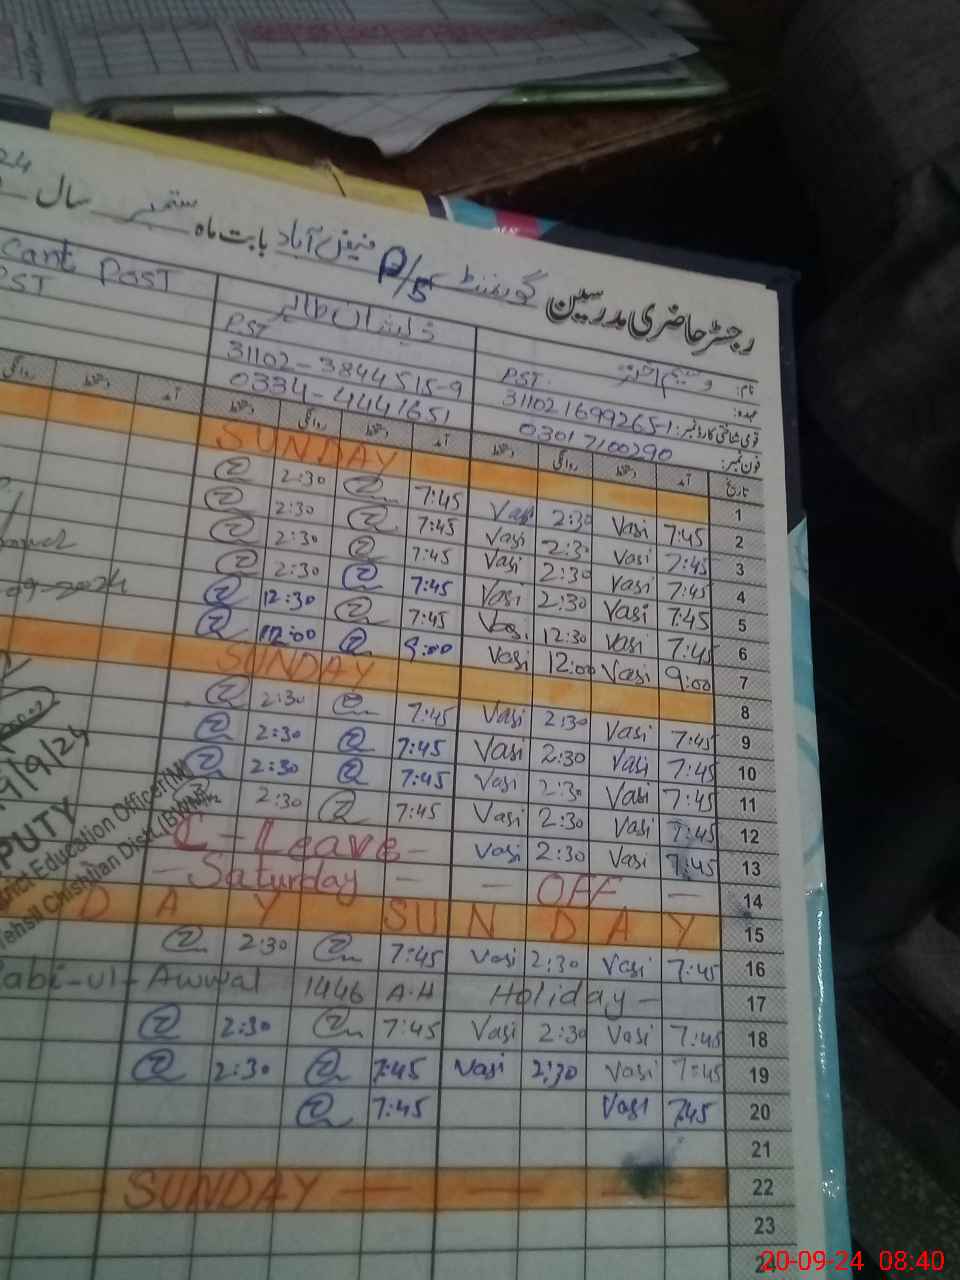 رجسٹر حاضری مدرسین گورنمنٹ P/5 فیض آباد بابت ماہ ستمبر سال 24
نام: وسیم اختر ذیشان طاہر cant Post
عہدہ: PST. PST PST
قومی شناختی کارڈ نمبر: 311021699265-1 31102-3844515-9
فون نمبر: 03017100290 0334-4441651
تاریخ آمد دستخط روانگی دستخط آمد دستخط روانگی دستخط آمد دستخط روانگی
1 SUNDAY
2 7:45 Vasi 2:30 Vasi 7:45 2:30
3 7:45 Vasi 2:30 Vasi 7:45 2:30
4 7:45 Vasi 2:30 Vasi 7:45 2:30
5 7:45 Vasi 2:30 Vasi 7:45 2:30
6 7:45 Vasi 12:30 Vasi 7:45 12:30
7 9:00 Vasi 12:00 Vasi 9:00 12:00
8 SUNDAY
9 7:45 Vasi 2:30 Vasi 7:45 2:30
10 7:45 Vasi 2:30 Vasi 7:45 2:30
11 7:45 Vasi 2:30 Vasi 7:45 2:30
12 7:45 Vasi 2:30 Vasi 7:45 2:30
13 7:45 Vasi 2:30 Vasi C-Leave-
14 - Saturday - - OFF -
15 D A Y SUNDAY
16 7:45 Vasi 2:30 Vasi 7:45 2:30
17 Rabi-ul-Awwal 1446 A.H Holiday -
18 7:45 Vasi 2:30 Vasi 7:45 2:30
19 7:45 Vasi 2:30 Vasi 7:45 2:30
20 7:45 Vasi 7:45
21
22 SUNDAY
23
-09-2024
9/9/24
PUTY
rict Education Officer(M)
Tehsil Chishtian Distt.(BWN)
20-09-24 08:40